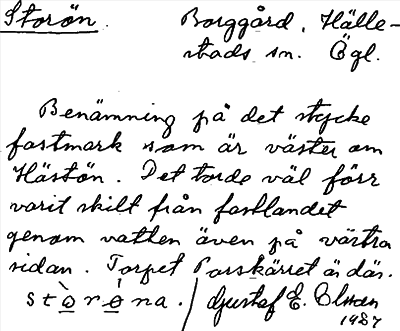 Storön. Borggård, Hälle-
stads sn. Ögl.
Benämning på det stycke
fastmark som är väster om
Hästön. Det torde väl förr
varit skilt från fastlandet
genom vatten även på västra
sidan. Torpet Porskärret är där.
stò̲rø̲̀na. / Gustaf E. Elman
1927